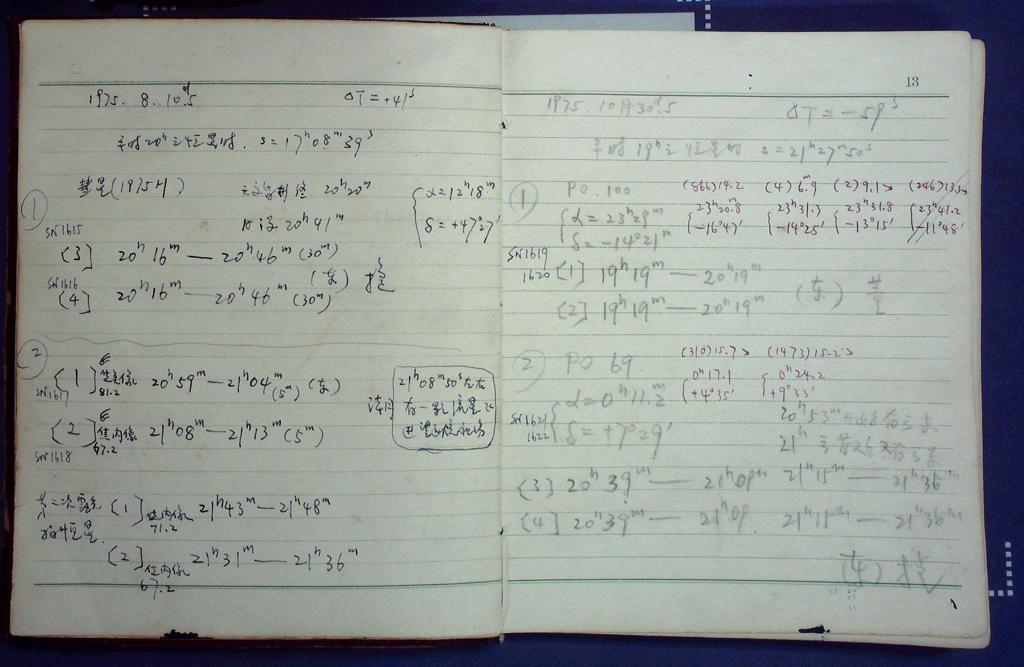 1975. 8. 10ᵈ.5 ΔT = +41ˢ
平时20ʰ之恒星时. s = 17ʰ08ᵐ39ˢ
彗星(1975H) 20ʰ20ᵐ
20ʰ41ᵐ
{α=12ʰ18ᵐ
δ=+47°27′
①
SN1615
[3] 20ʰ16ᵐ — 20ʰ46ᵐ (30ᵐ)
SN1616
[4] 20ʰ16ᵐ — 20ʰ46ᵐ (30ᵐ)
(东)
②
[1] 81.2 20ʰ59ᵐ — 21ʰ04ᵐ (5ᵐ) (东)
SN1617
[2] 67.2 21ʰ08ᵐ — 21ʰ13ᵐ (5ᵐ)
SN1618
21ʰ08ᵐ50ˢ左右
有一颗流星
第二次
恒星
[1] 71.2 21ʰ43ᵐ — 21ʰ48ᵐ
[2] 67.2 21ʰ31ᵐ — 21ʰ36ᵐ
13
1975. 10月30ᵈ.5 ΔT = -59ˢ
平时19ʰ之恒星时 s = 21ʰ27ᵐ50ˢ
① PO. 100
{α = 23ʰ29ᵐ
δ = -14°21ᵐ
(866)14.2 (4)6ᵐ.9 (2)9.1 (246)13.5
{23ʰ20.8 {23ʰ31.3 {23ʰ31.8 {23ʰ41.2
-16°47′ -14°25′ -13°15′ -11°48′
SN1619
1620
[1] 19ʰ19ᵐ — 20ʰ19ᵐ
[2] 19ʰ19ᵐ — 20ʰ19ᵐ
(东)
② PO 69
{α = 0ʰ11.2
δ = +7°29′
(310)15.7 (1473)15.2
{0ʰ17.1 {0ʰ24.2
+4°35′ +9°33′
SN1621
1622
20ʰ53ᵐ
21ʰ
[3] 20ʰ39ᵐ — 21ʰ09ᵐ 21ʰ15ᵐ — 21ʰ36ᵐ
[4] 20ʰ39ᵐ — 21ʰ09 21ʰ15ᵐ — 21ʰ36ᵐ
(东)